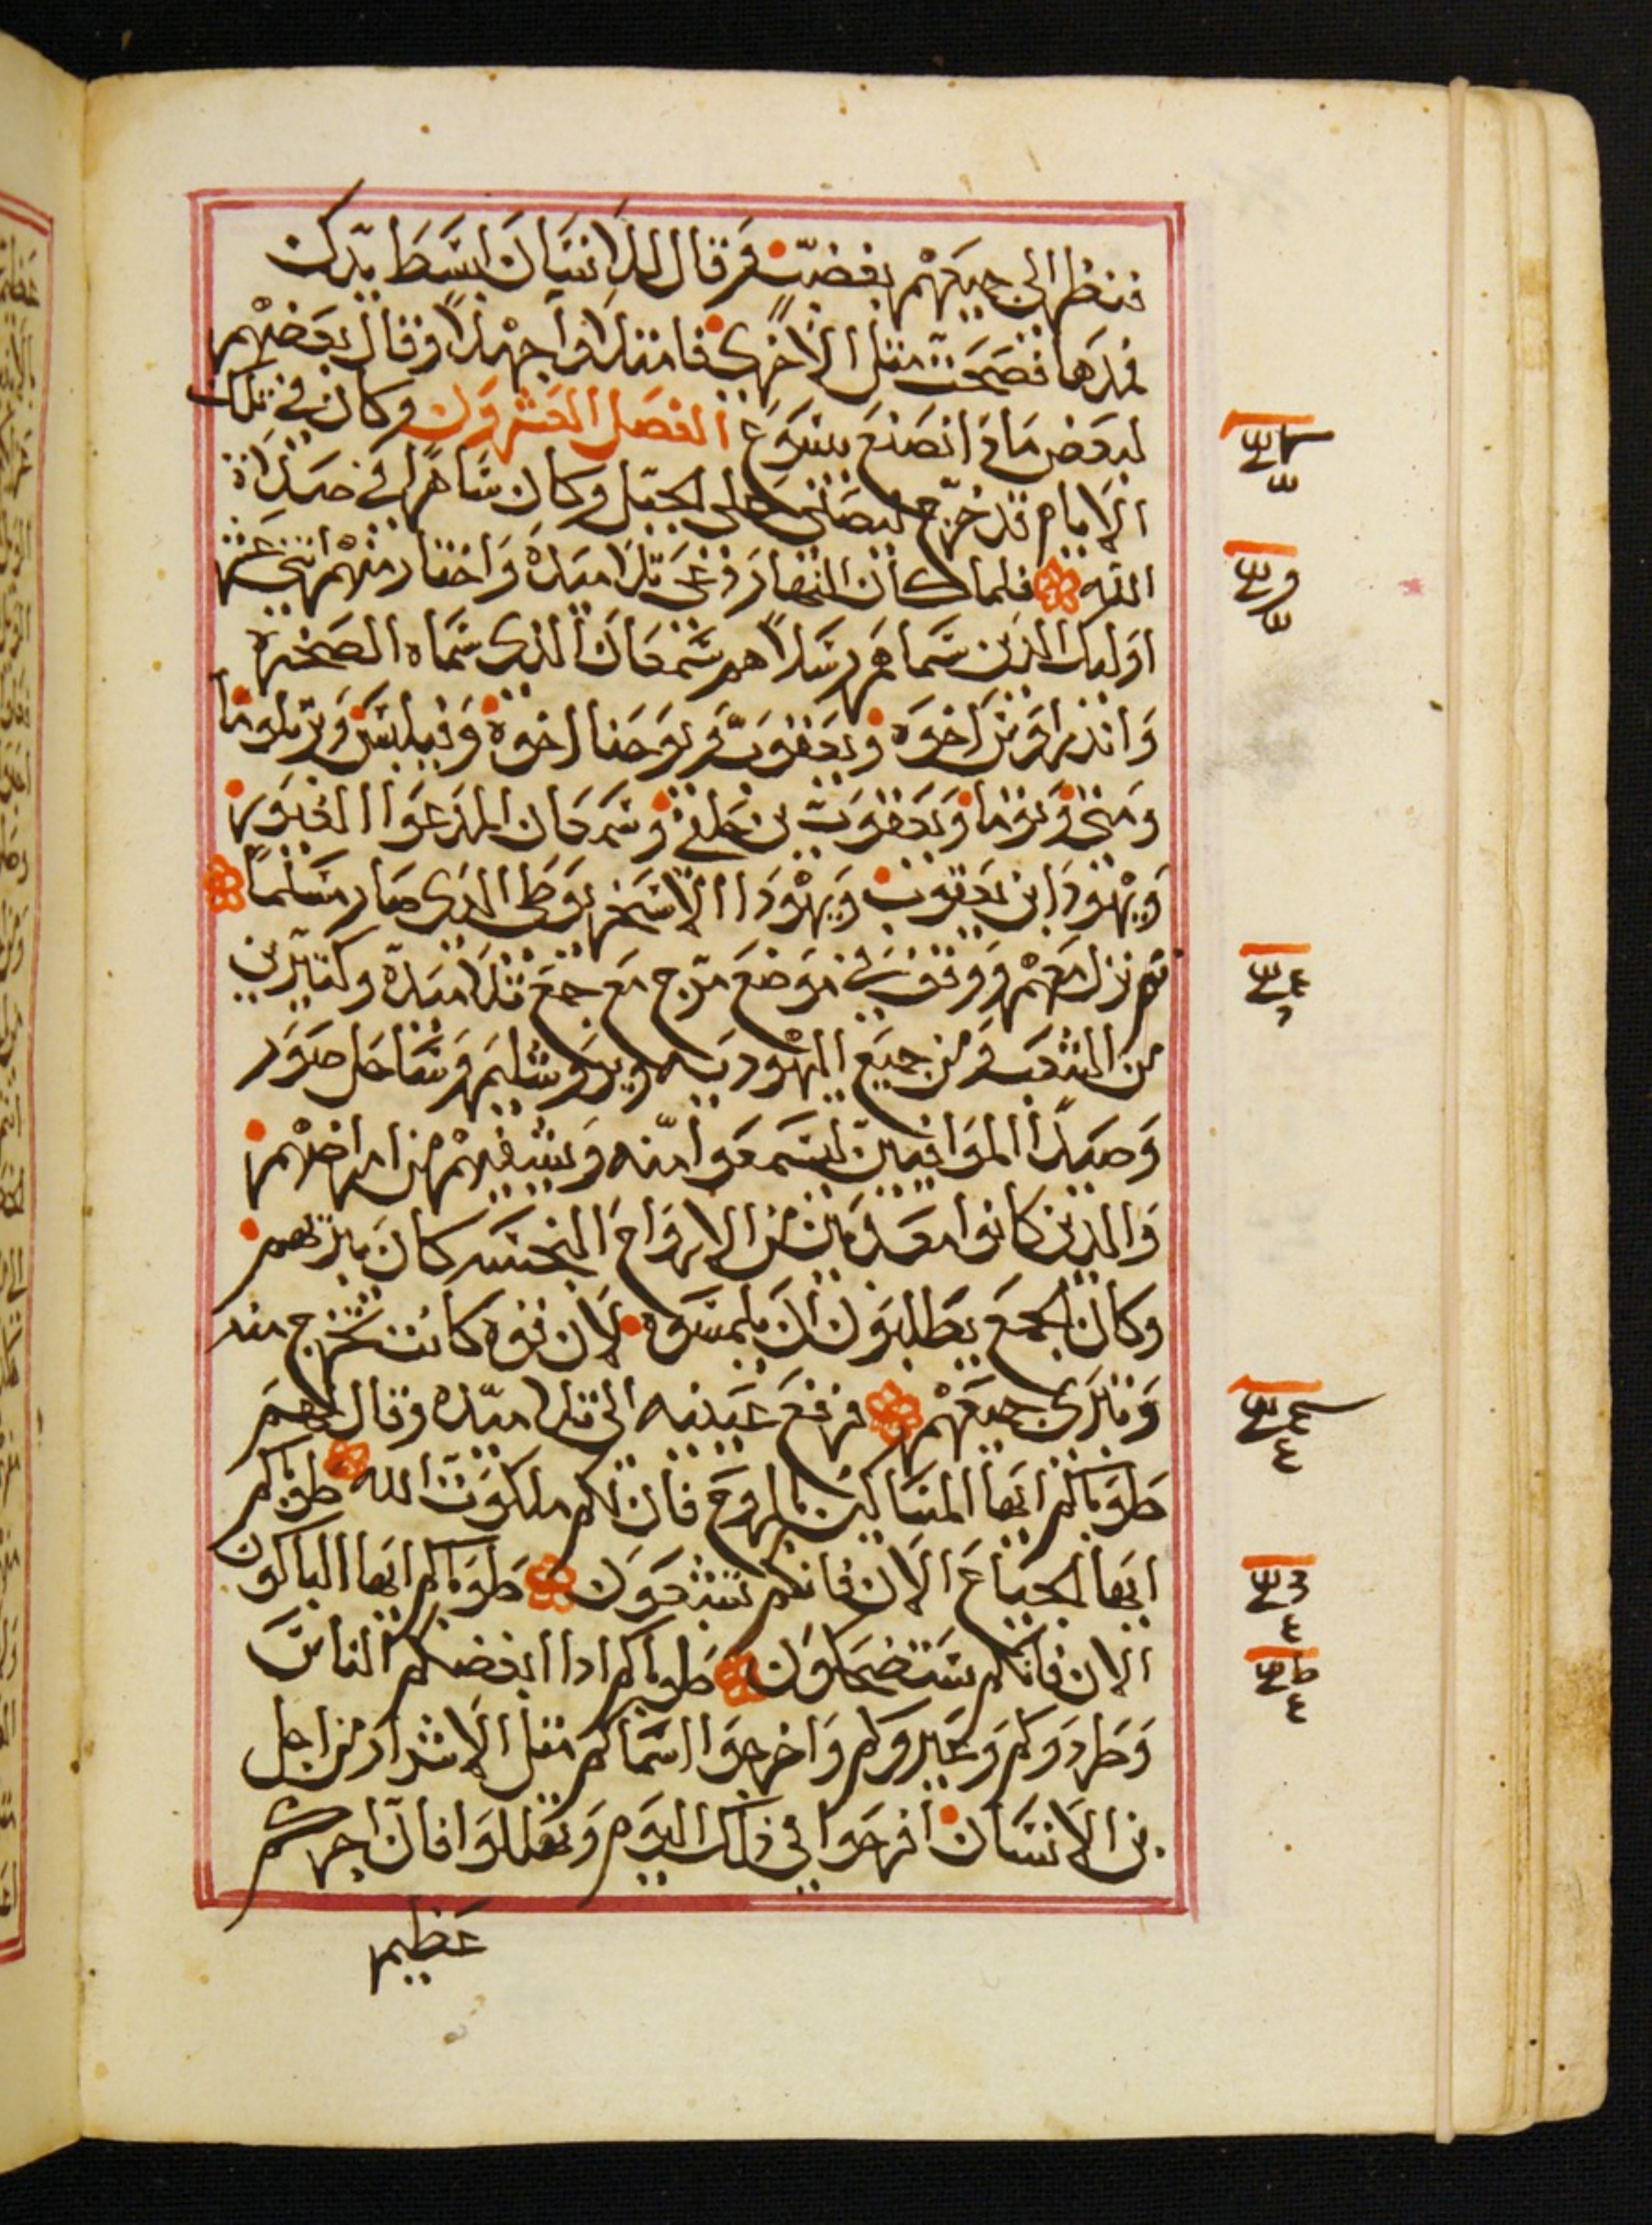 فنظر الى جميعهم بغضب وقال للانسان ابسط يدك
فمدها فصحت مثل الاخرى فامتلاوا جهلاً وقال بعضهم
لبعض ماذا نصنع بيسوع الفصل العشرون وكان في تلك
الايام قد خرج ليصلي على الجبل وكان ساهرا في صلاة
الله فلما كان النهار دعى تلاميده واختار منهم اثني عشر
اوليك الذين سماهم رسلاً هم سمعان الذي سماه الصخره
واندراوس اخوه ويعقوب ويوحنا اخوه وفيلبس وبرتلوما
ومتى وتوما ويعقوب بن حلفى وسمعان المدعوا الغيور
ويهودا ابن يعقوب ويهودا الاسخريوطي الدي صار مسلما
ثم نزل معهم ووقف في موضع مرج مع جمع تلاميده وكثيرين
من الشعب ومن جميع اليهوديه ويروشليم وساحل صور
وصيدا الموافيين ليسمعوا منه ويشفيهم من امراضهم
والدين كانوا معدبين من الارواح النجسه كان يبريهم
وكان الجمع يطلبون ان يلمسوه لان قوه كانت تخرج منه
وتبرى جميعهم فرفع عينيه الى تلاميده وقال لهم
طوباكم ايها المساكين بالروح فان لكم ملكوت الله طوباكم
ايها الجياع الان فانكم تشبعون طوباكم ايها الباكون
الان فانكم ستضحكون طوباكم ادا ابغضكم الناس
وطردوكم وعيروكم واخرجوا اسماكم مثل الاشرار من اجل
بن الانسان افرحوا في ذلك اليوم وتهللوا فان اجركم
عظيم